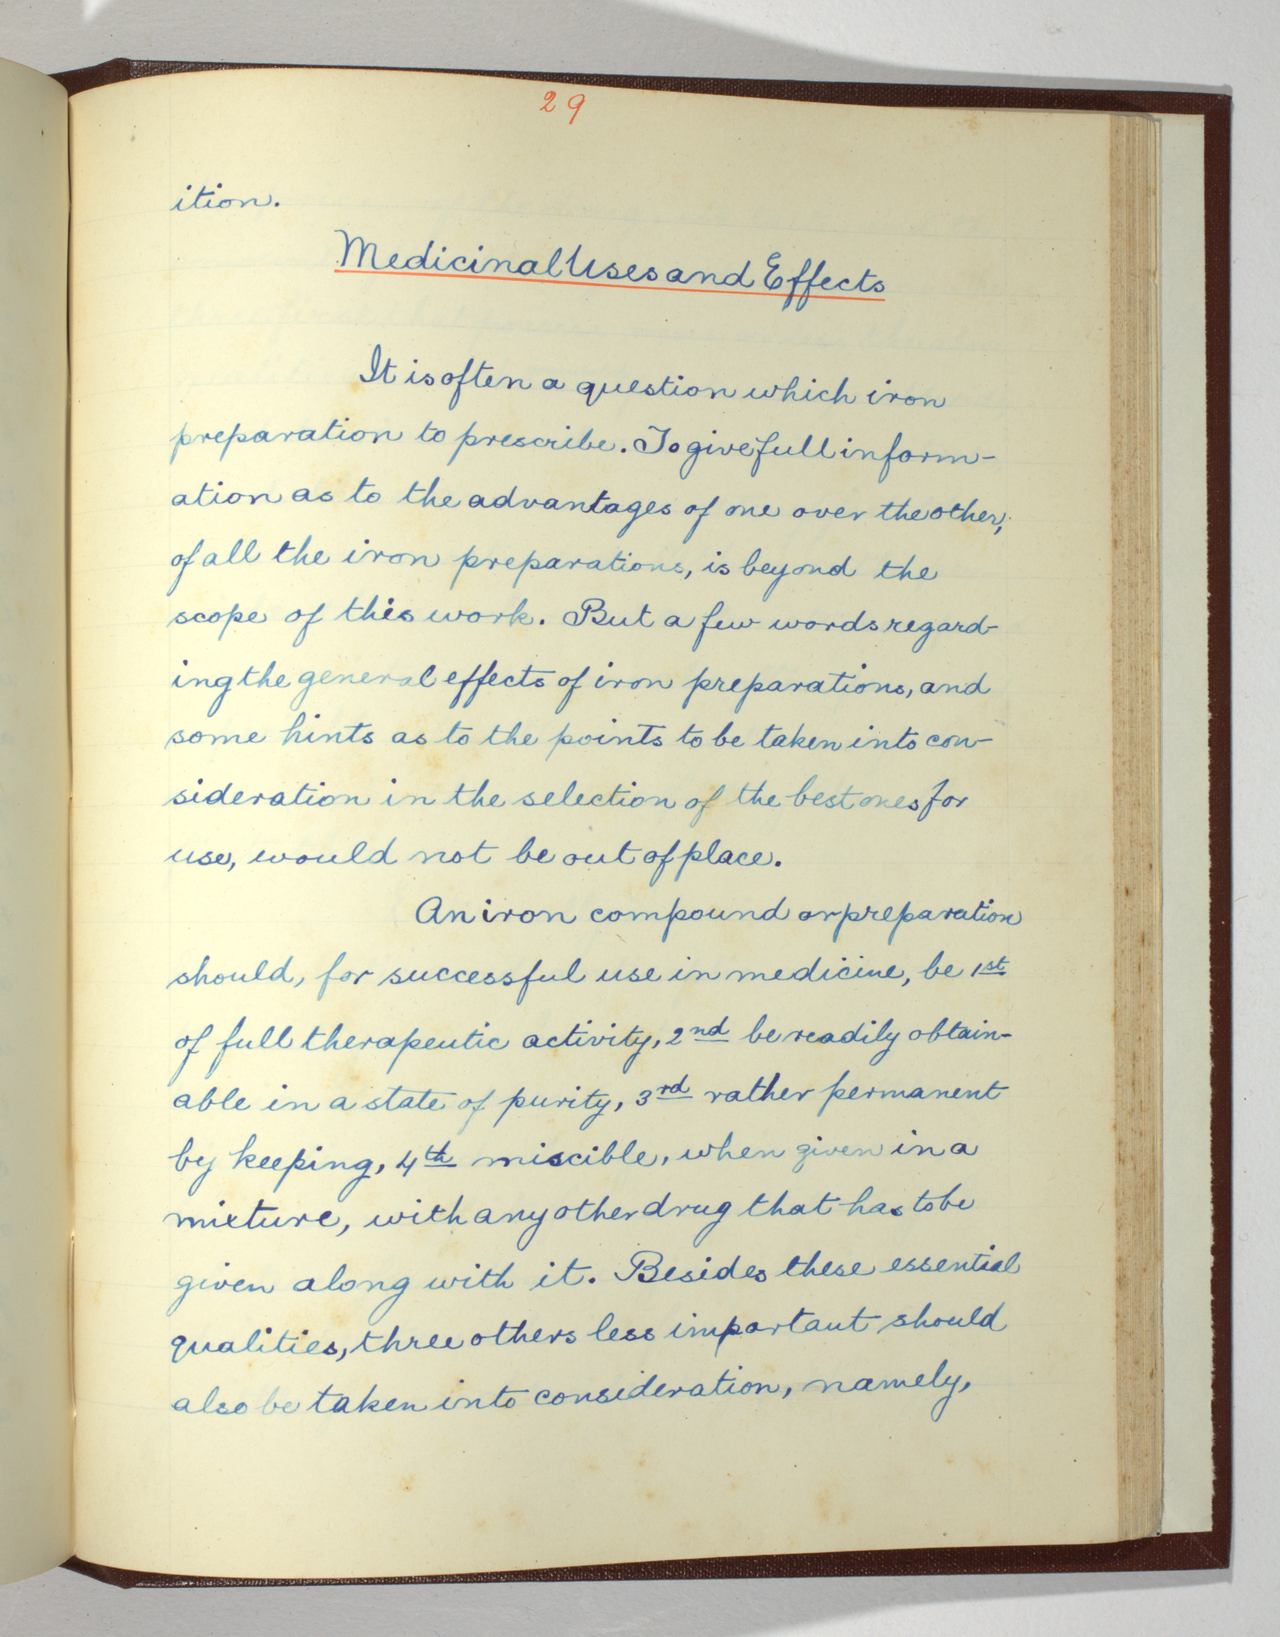 29
ition.
Medicinal Uses and Effects
It is often a question which iron
preparation to prescribe. To give full inform-
ation as to the advantages of one over the other,
of all the iron preparations, is beyond the
scope of this work. But a few words regard-
ing the general effects of iron preparations, and
some hints as to the points to be taken into con-
sideration in the selection of the best ones for
use, would not be out of place.
An iron compound or preparation
should, for successful use in medicine, be 1st
of full therapeutic activity, 2nd be readily obtain-
able in a state of purity, 3rd rather permanent
by keeping, 4th miscible, when given in a
mixture, with any other drug that has to be
given along with it. Besides these essential
qualities, three others less important should
also be taken into consideration, namely,